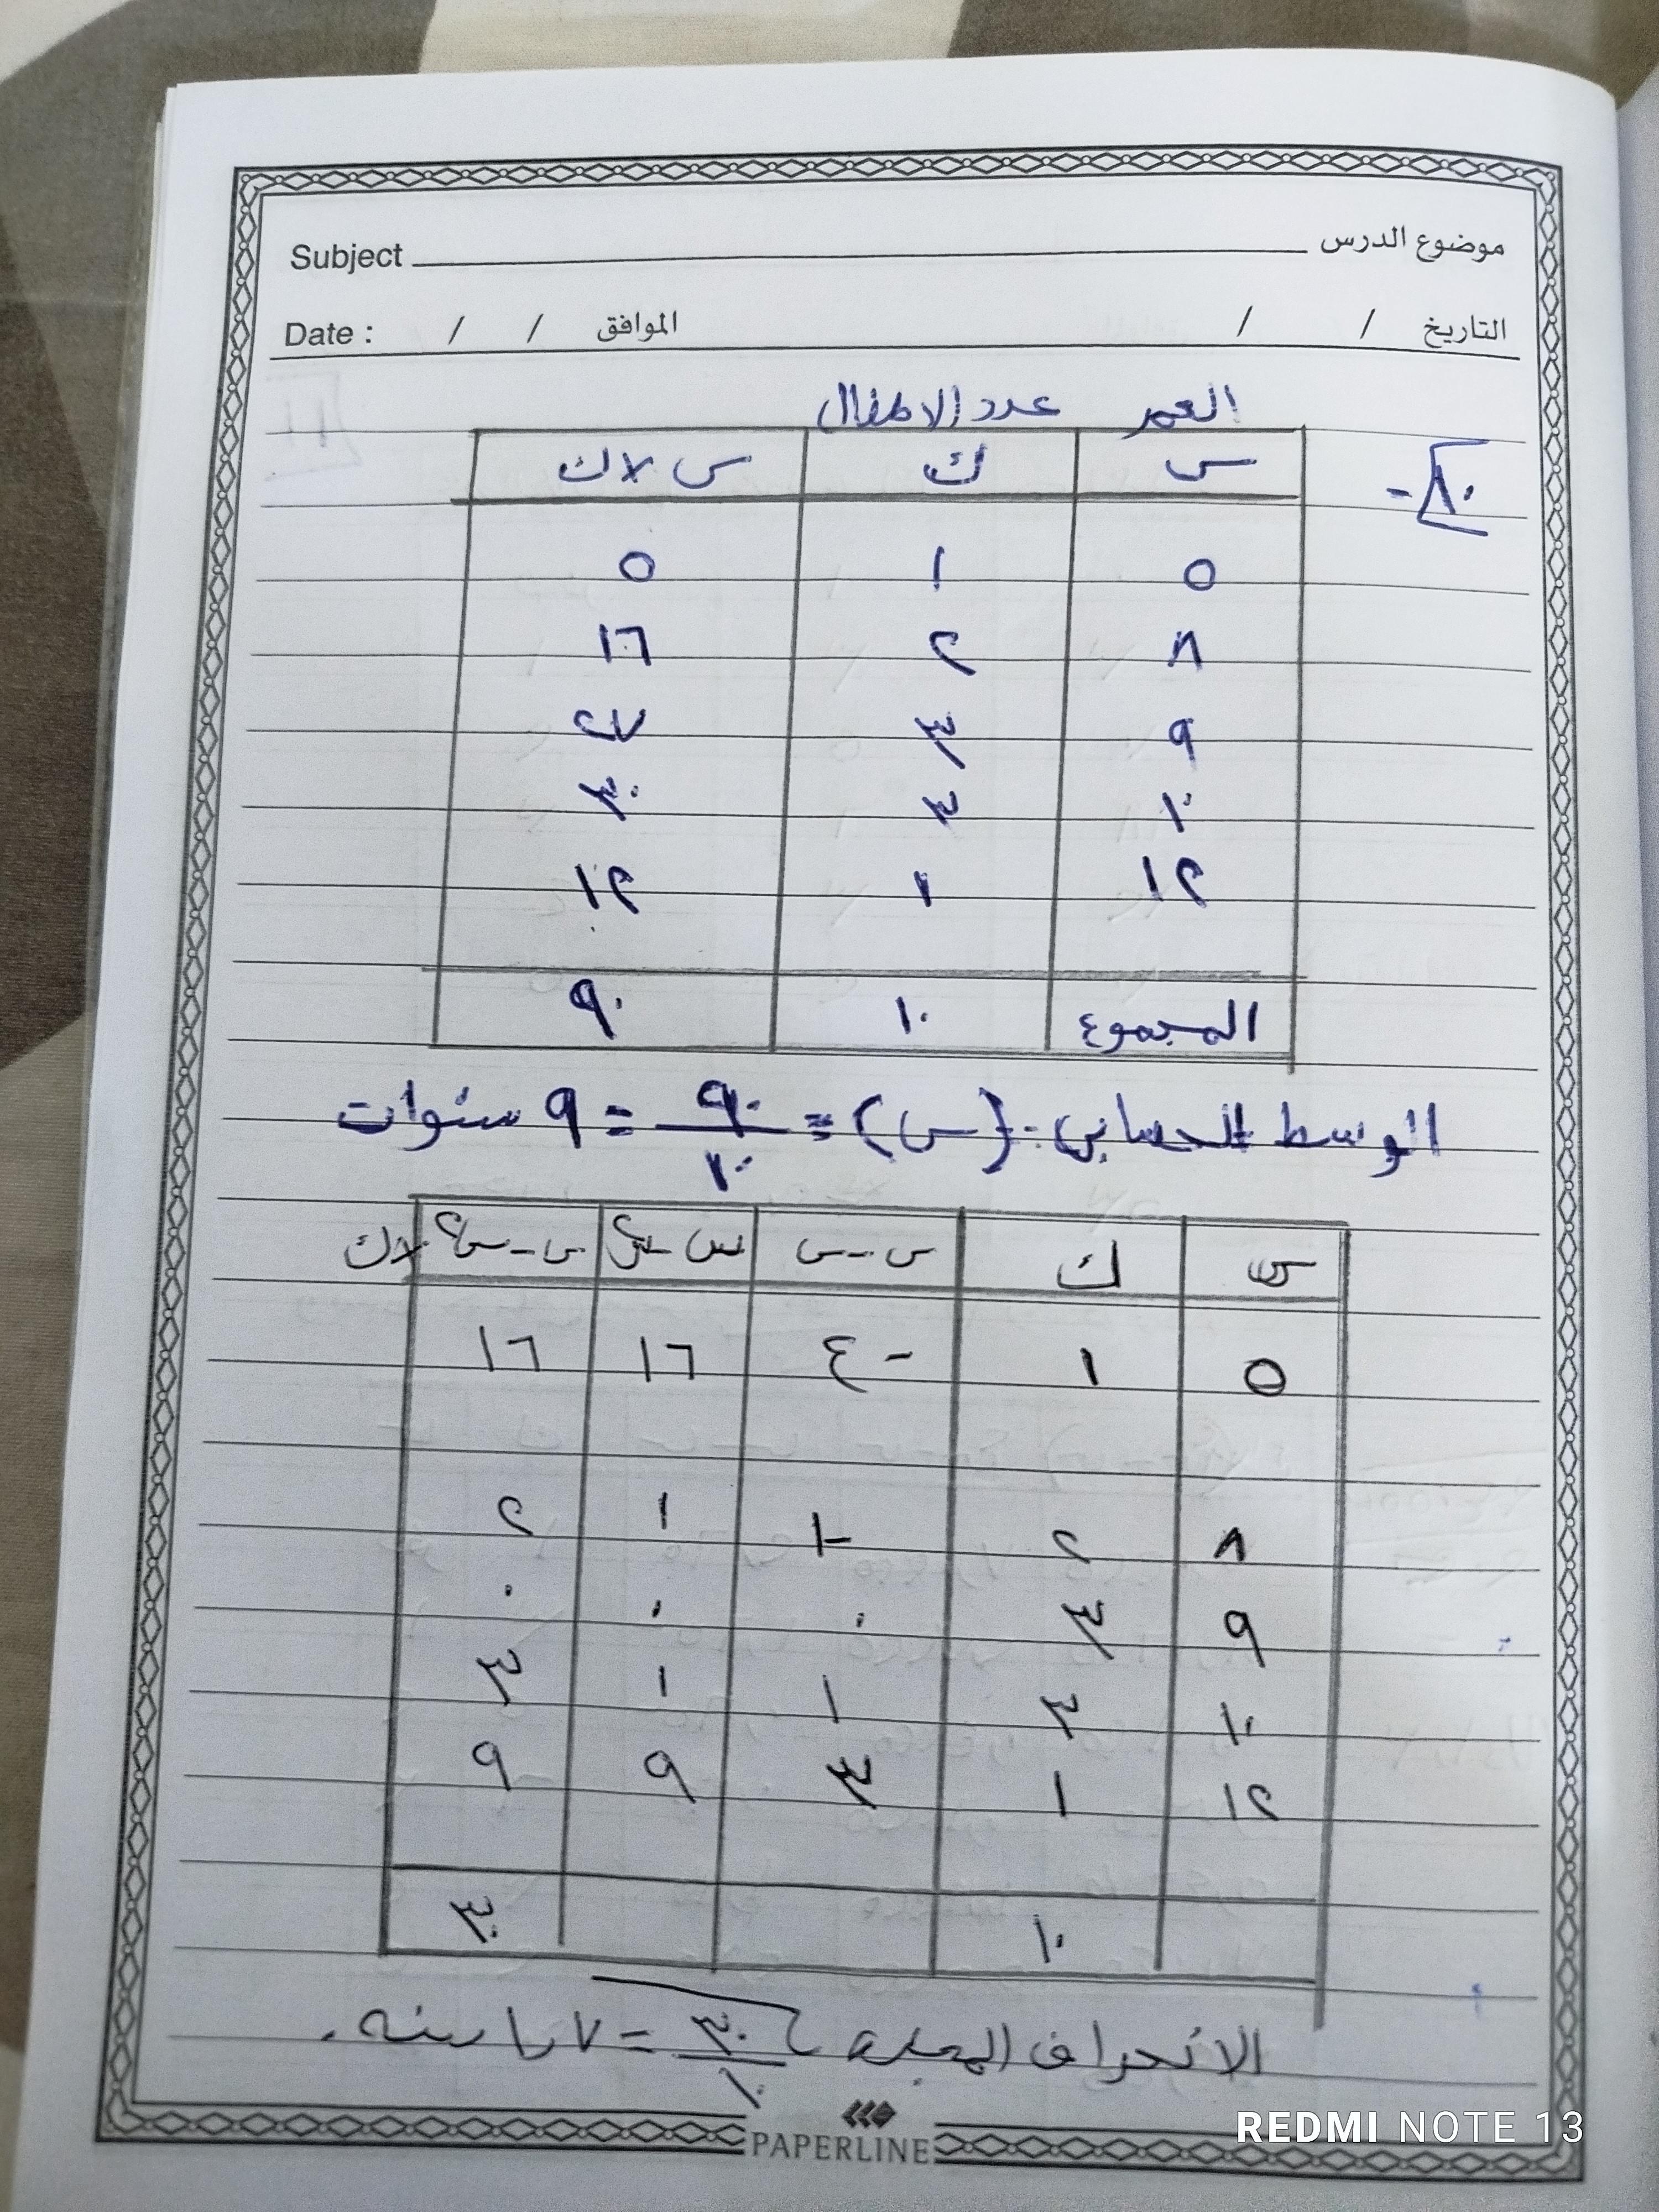 Subject موضوع الدرس
Date : / / الموافق / / التاريخ
العمر عدد الاطفال
١٠ -
س ك س × ك
٥ ١ ٥
٨ ٢ ١٦
٩ ٣ ٢٧
١٠ ٣ ٣٠
١٢ ١ ١٢
المجموع ١٠ ٩٠
الوسط الحسابى (س) = ٩٠/١٠ = ٩ سنوات
س ك س - س (س - س)٢ (س - س)٢ × ك
٥ ١ - ٤ ١٦ ١٦
٨ ٢ - ١ ١ ٢
٩ ٣ ٠ ٠ ٠
١٠ ٣ ١ ١ ٣
١٢ ١ ٣ ٩ ٩
١٠ ٣٠
الانحراف المعيارى √٣٠/١٠ = ١,٧ سنه .
PAPERLINE
REDMI NOTE 13